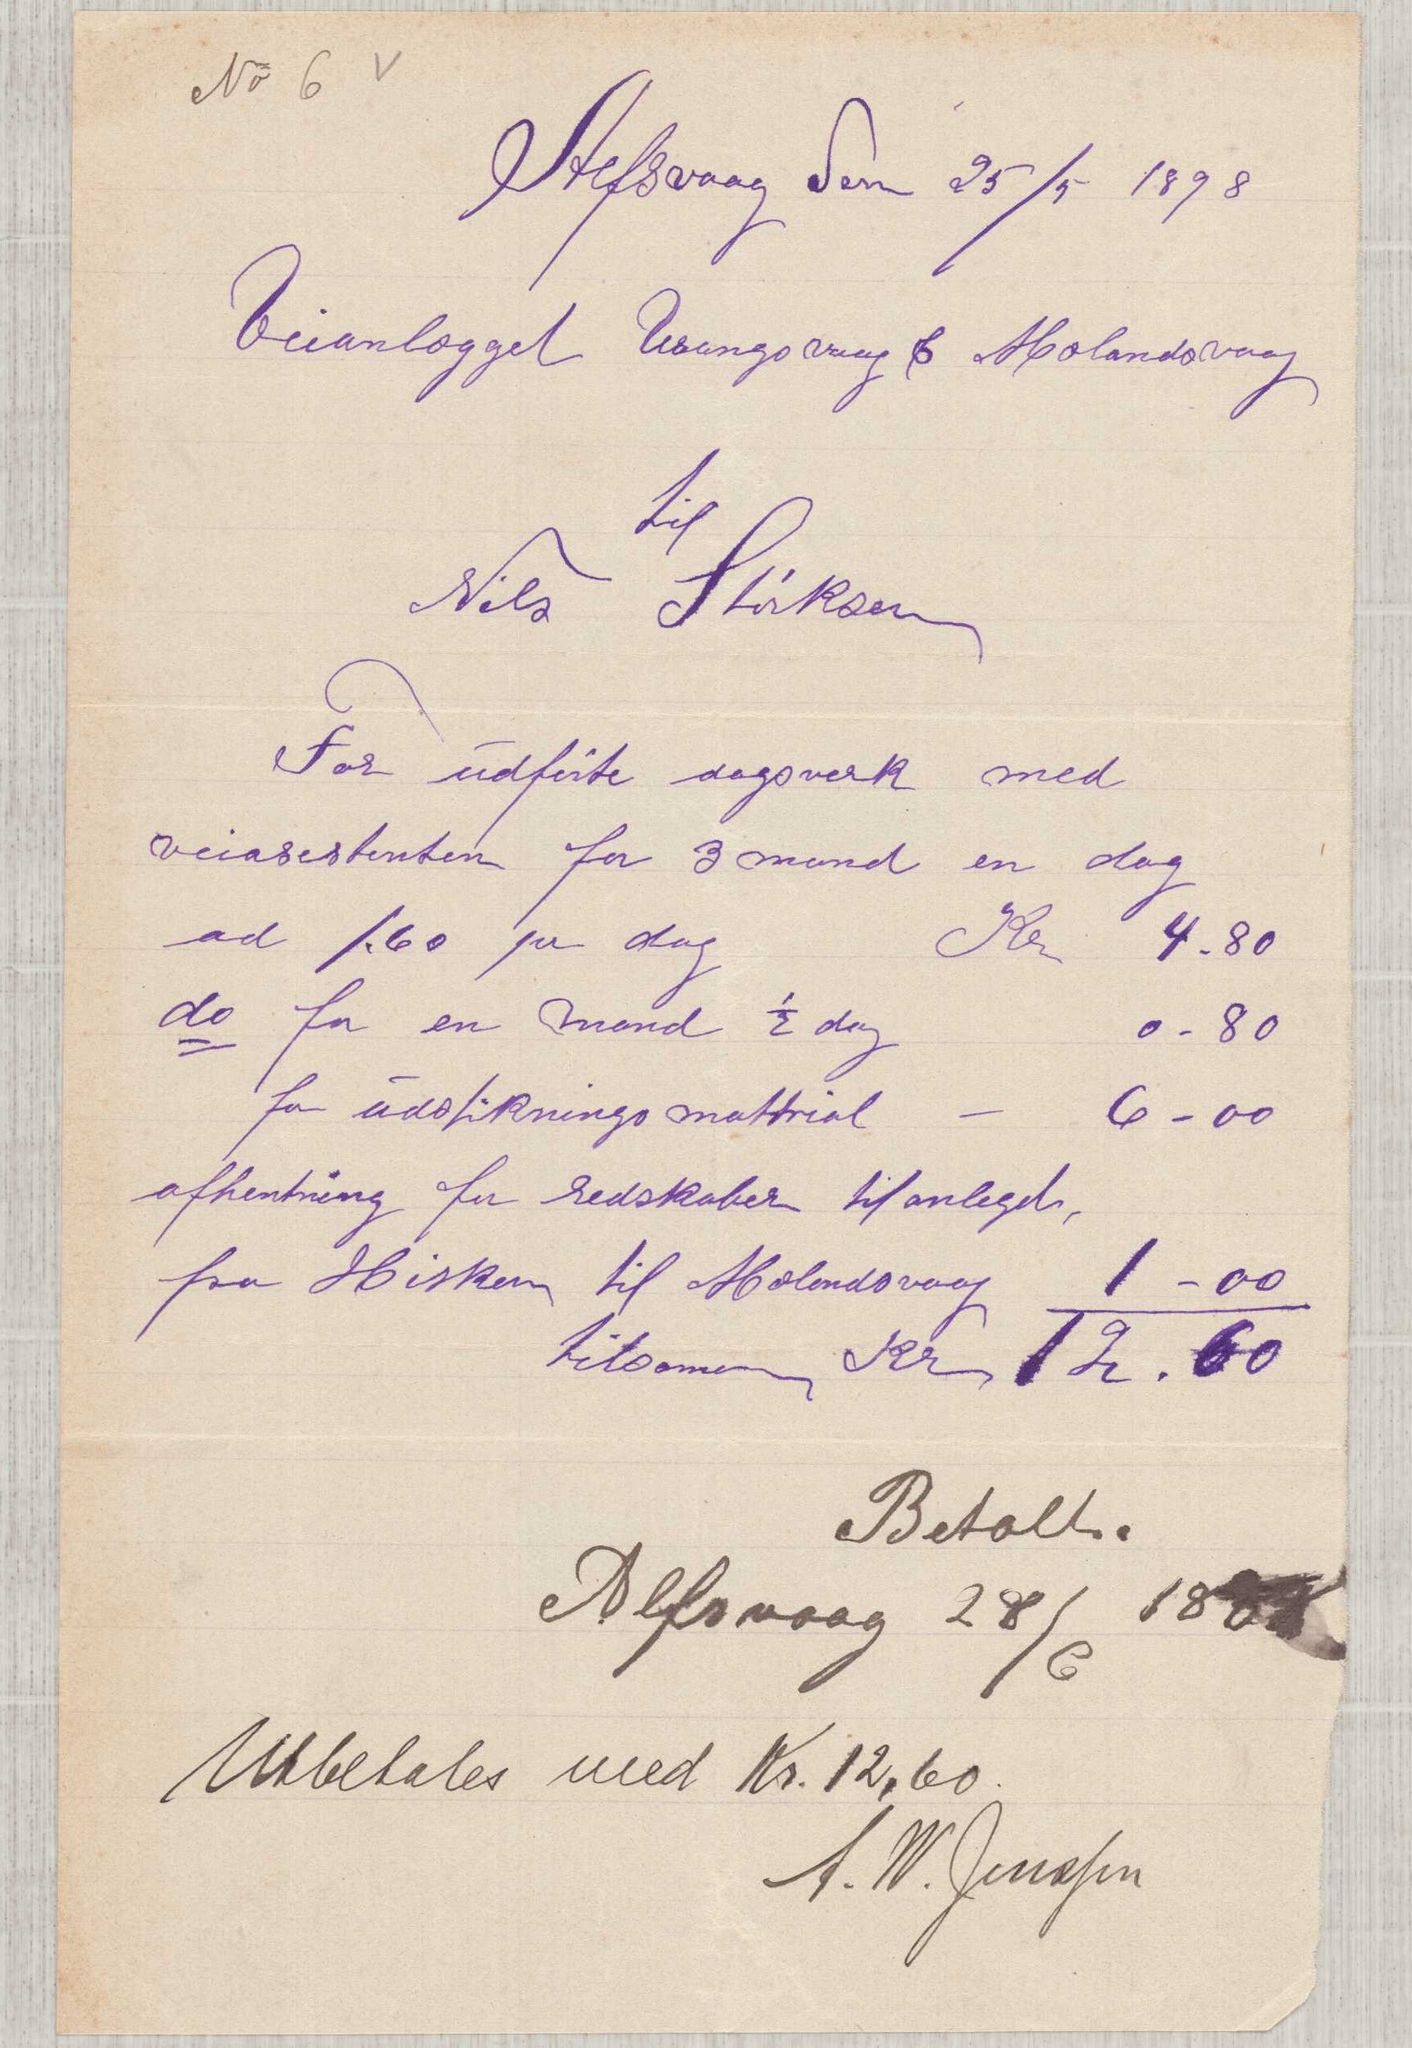 No 6 v
Alfsvaag den 25/5 1898
Veianlægget Urangsvaag & Mælandsvaag
til
Nils Störksen
For üdförte dagsverk med
veiasestenten for 3 mand en dag
ad 1.60 pr dag Kr 4.80
do for en mand ½ dag 0-80
for üdstikningsmattrial - 6-00
afhentning for redskaber til anlegd,
fra Hisken til Mælandsvaag 1-00
tilsamen Kr 12.60
Betalt.
Alfsvaag 28/6 18
Utbetales med Kr. 12,60.
A. W. Jenssen